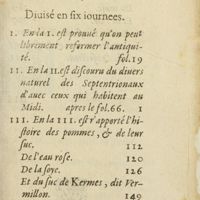 Diuisé en six iournees.
I. En la I. est prouué qu'on peut
librement reformer l'antiqui-
té. fol. 19
II. En la II. est discouru du diuers
naturel des Septentrionaux
d'auec ceux qui habitent au
Midi. apres le fol. 66. 1
III. En la III. est r'apporté l'hi-
stoire des pommes, & de leur
suc. 112
De l'eau rose. 120
De la soye. 126
Et du suc de Kermes, dit Ver-
millon. 149